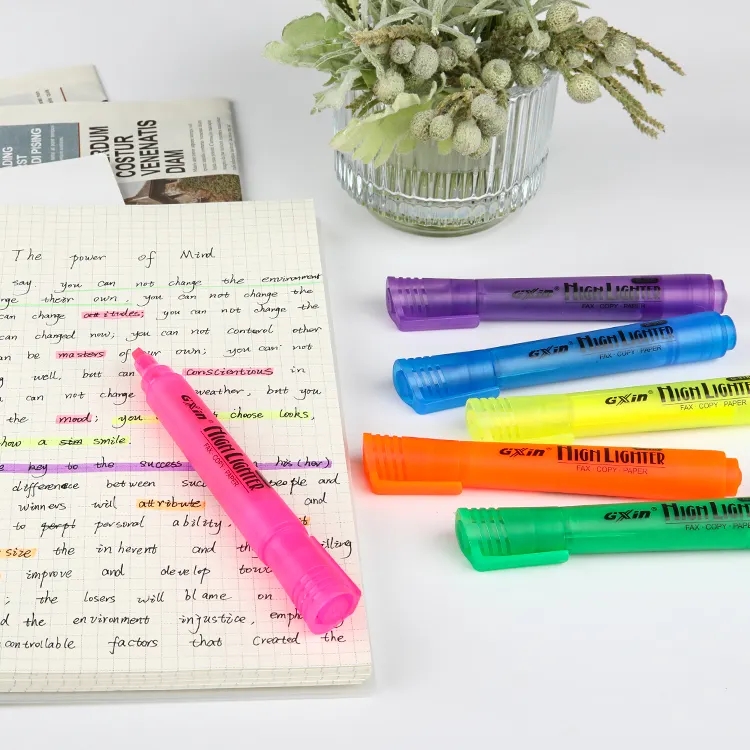 ERDUM
COSTUR
VENENATIS
DIAM
DING
DI PISING
The power of Mind
say you can not change the environment
their own, you can not change the
can change attitudes; you can not change the
can changed now; you can not control other
an be masters of your own; you can not
well, but can conscientious in
can not change weather, but you
the mood; you choose looks,
how a sim smile.
e key to the success in his(her)
difference between success people and
winners will attribute and
to perpl personal ability.
size the inherent and the
improve and develop
; the losers will blame on
d the environment injustice,
controllable factors that created the
GXin HIGHLIGHTER
FAX·COPY·PAPER
GXin HIGHLIGHTER
FAX·COPY·PAPER
GXin HIGHLIGHTER
FAX COPY PAPER
GXin HIGHLIGHTER
FAX COPY PAPER
GXin HIGHLIGHTER
FAX·COPY·PAPER
GXin HIGHLIGHTER
FAX·COPY·PAPER